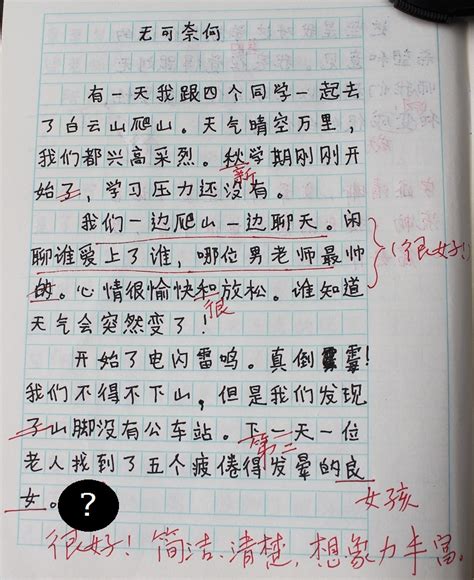 无可奈何
有一天我跟四个同学一起去
了白云山爬山。天气晴空万里，
我们都兴高采烈。秋学期刚刚开
新
始了，学习压力还没有。
我们一边爬山一边聊天。闲
聊谁爱上了谁，哪位男老师最帅
(很好!)
的。心情很愉快和放松。谁知道
很
天气会突然变了！
开始了电闪雷鸣。真倒霉！
我们不得不下山，但是我们发现
了山脚没有公车站。下一天一位
第二
老人找到了五个疲倦得发晕的良
女。
?
女孩
很好！简洁、清楚，想象力丰富。